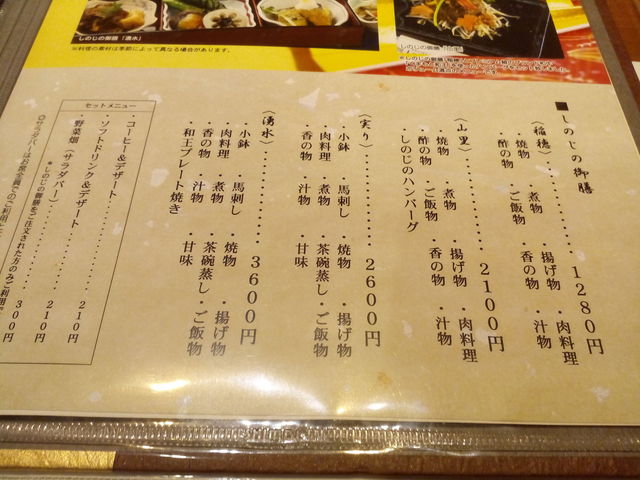 しのじの御膳「湧水」
※料理の素材は季節によって異なる場合があります。
■しのじの御膳
〈稲穂〉………………1280円
・焼物　・煮物　・揚げ物　・肉料理
・酢の物　・ご飯物　・香の物　・汁物
〈山里〉………………2100円
・焼物　・煮物　・揚げ物　・肉料理
・酢の物　・ご飯物　・香の物　・汁物
・しのじのハンバーグ
〈実り〉………………2600円
・小鉢　・馬刺し　・焼物　・揚げ物
・肉料理　・煮物　・茶碗蒸し・ご飯物
・香の物　・汁物　・甘味
〈湧水〉………………3600円
・小鉢　・馬刺し　・焼物　・揚げ物
・肉料理　・煮物　・茶碗蒸し・ご飯物
・香の物　・汁物　・甘味
・和王プレート焼き
セットメニュー
・コーヒー＆デザート………………210円
・ソフトドリンク＆デザート………210円
・野菜畑（サラダバー）………………300円
＊しのじの御膳をご注文された方のみ
◎サラダバーは必ず全員でのご利用